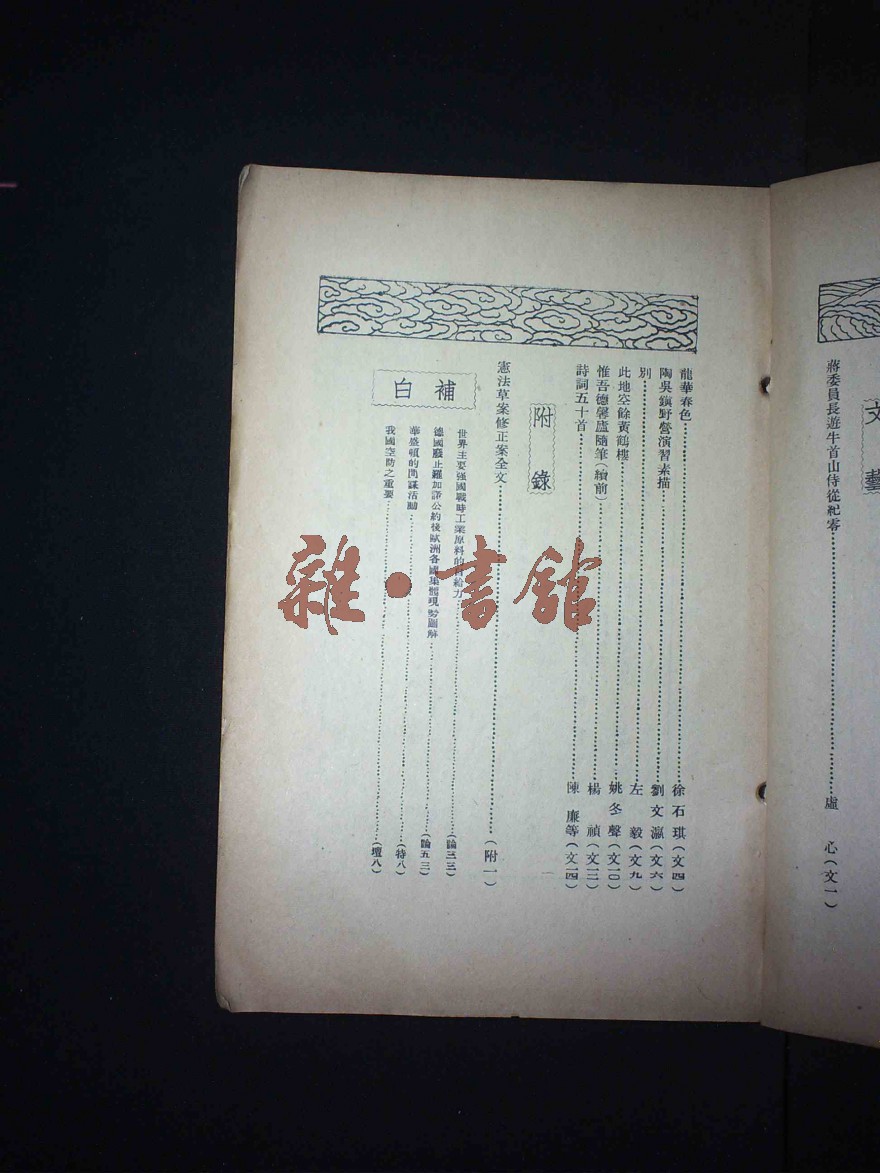 文藝
蔣委員長遊牛首山侍從紀零……虛 心(文一)
龍華春色……徐石琪(文四)
陶吳鎭野營演習素描……劉文瀛(文六)
別……左 毅(文九)
此地空餘黃鶴樓……姚冬聲(文一〇)
惟吾德馨廬隨筆(續前)……楊 禎(文一二)
詩詞五十首……陳 廉等(文一四)
附錄
憲法草案修正案全文……(附一)
補白
世界主要强國戰時工業原料的自給力……(論三三)
德國廢止羅加諾公約後歐洲各國集體現勢圖解……(論五三)
華盛頓的間諜活動……(特八)
我國空防之重要……(壇八)
雜·書館